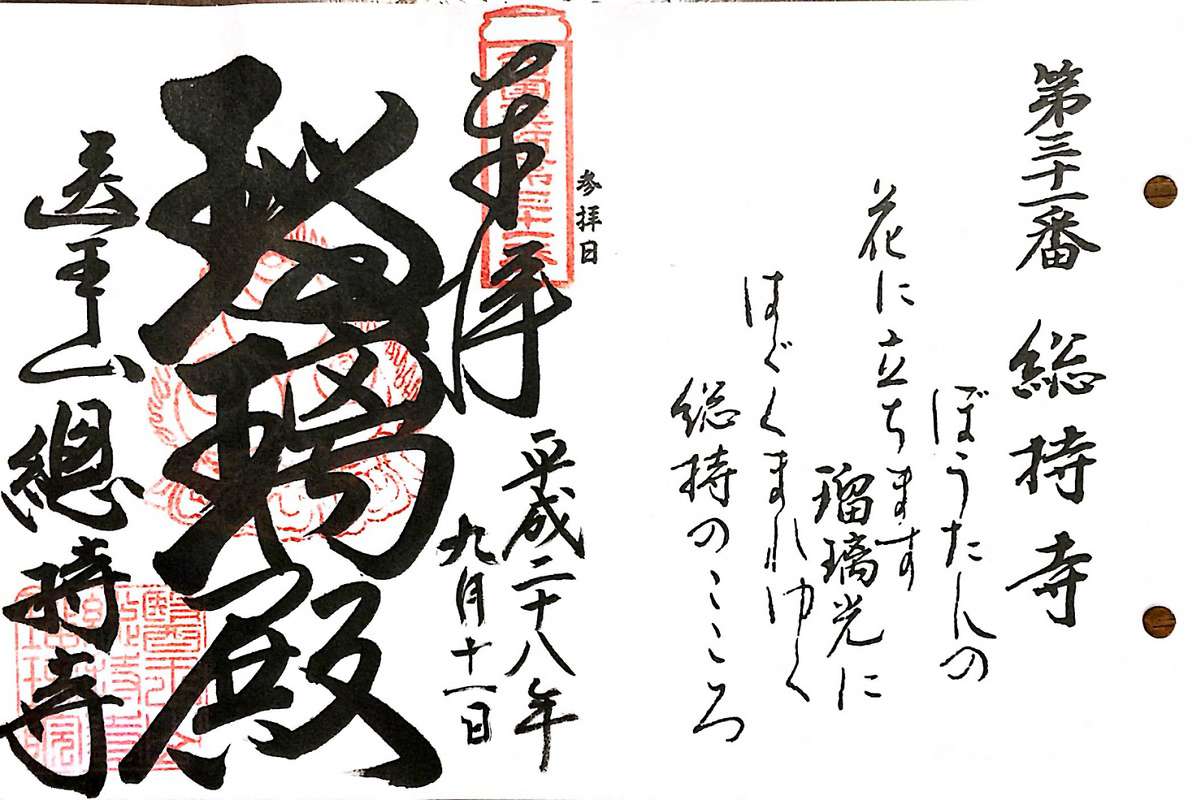 第三十一番 総持寺
ぼうたんの
花に立ちます
瑠璃光に
はぐくまれゆく
総持のこころ
参拝日
奉拝
平成二十八年
九月十一日
瑠璃殿
医王山
總持寺